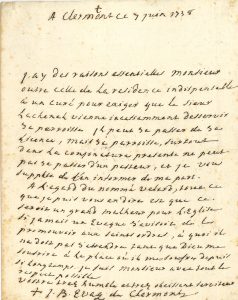 A Clermont ce 7 juin 1738
J'ay des raisons essentieles monsieur
outre celle de la residence indispensable
a un curé pour exiger que le sieur
vienne incessamment desservir
sa parroisse. il peut se passer de sa
mais sa parroisse, surtout
dans la conjoncture presente ne peut
pas se passer d'un pasteur, et je vous
supplie de l'en informer de ma part.
A l'egard du nommé tout ce
que je puis vous en dire est que ce
seroit un grand malheur pour l'Eglise
si jamais un Eveque s'avisoit de le
promouvoir aux saints ordres, a quoi il
ne doit pas s'attendre tant que dieu me
la place ou il me souffre depuis
si longtemps je suis monsieur avec tout le
respect possible
votre tres humble et tres obeissant serviteur
† J. B. Eveq de Clermont